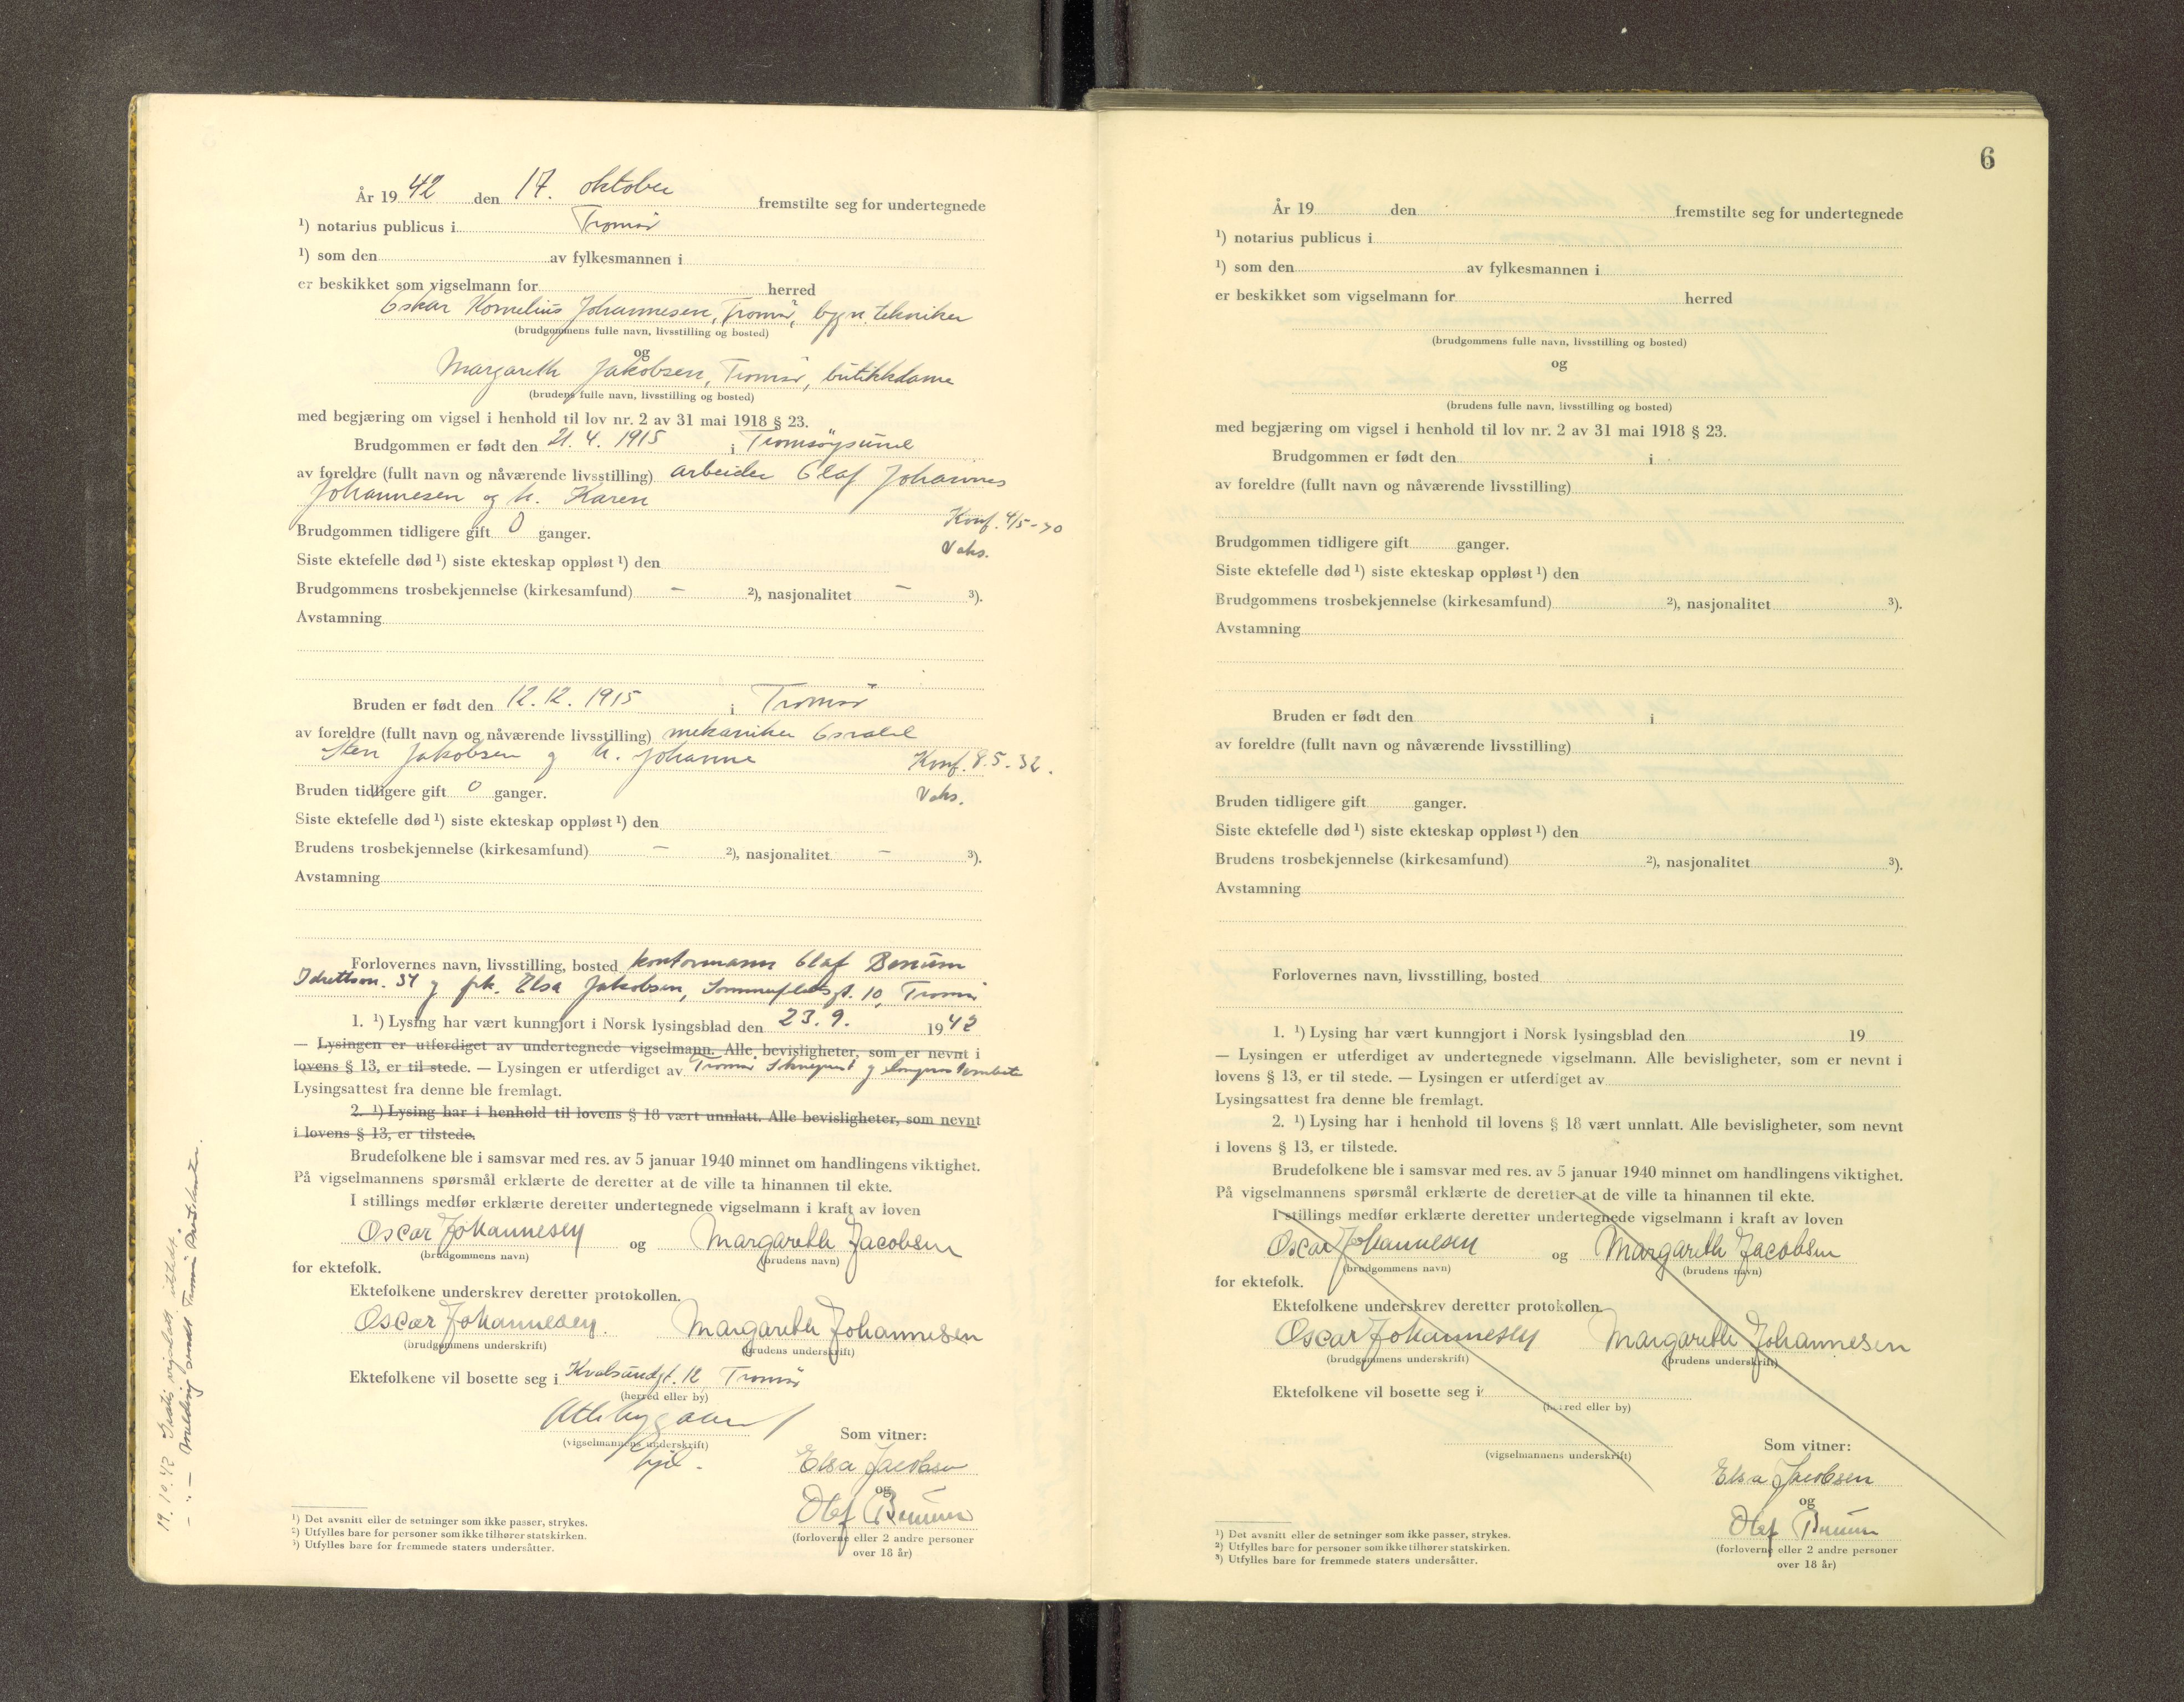 År 1942 den 17. oktober fremstilte seg for undertegnede
¹) notarius publicus i Tromsö
¹) som den av fylkesmannen i
er beskikket som vigselmann for herred
Oskar Kornelius Johannesen, Tromsö, bygn. tekniker
(brudgommens fulle navn, livsstilling og bosted)
og
Margareth Jakobsen, Tromsö, butikkdame
(brudens fulle navn, livsstilling og bosted)
med begjæring om vigsel i henhold til lov nr. 2 av 31 mai 1918 § 23.
Brudgommen er født den 21. 4. 1915 i Tromsöysund
av foreldre (fullt navn og nåværende livsstilling) arbeider Olaf Johannes
Johannesen og h. Karen
Konf. 4/5-30
Brudgommen tidligere gift 0 ganger.
Vaks.
Siste ektefelle død ¹) siste ekteskap oppløst ¹) den
Brudgommens trosbekjennelse (kirkesamfund) – ²), nasjonalitet – ³).
Avstamning
Bruden er født den 12. 12. 1915 i Tromsö
av foreldre (fullt navn og nåværende livsstilling) mekaniker
Sten Jakobsen og h. Johanne Konf. 8.5-32.
Bruden tidligere gift 0 ganger. Vaks.
Siste ektefelle død ¹) siste ekteskap oppløst ¹) den
Brudens trosbekjennelse (kirkesamfund) – ²), nasjonalitet – ³).
Avstamning
Forlovernes navn, livsstilling, bosted kontormann Olaf
Idrettsv. 34 og frk. Elsa Jakobsen, Sommerfeldtsgt. 10, Tromsö
1. ¹) Lysing har vært kunngjort i Norsk lysingsblad den 23. 9. 1942
— Lysingen er utferdiget av undertegnede vigselmann. Alle bevisligheter, som er nevnt i
lovens § 13, er til stede. — Lysingen er utferdiget av Tromsö og
Lysingsattest fra denne ble fremlagt.
2. ¹) Lysing har i henhold til lovens § 18 vært unnlatt. Alle bevisligheter, som nevnt
i lovens § 13, er tilstede.
Brudefolkene ble i samsvar med res. av 5 januar 1940 minnet om handlingens viktighet.
På vigselmannens spørsmål erklærte de deretter at de ville ta hinannen til ekte.
I stillings medfør erklærte deretter undertegnede vigselmann i kraft av loven
Oscar Johannesen og Margareth Jacobsen
(brudgommens navn) (brudens navn)
for ektefolk.
Ektefolkene underskrev deretter protokollen.
Oscar Johannesen. Margareth Johannesen
(brudgommens underskrift) (brudens underskrift)
Ektefolkene vil bosette seg i Kvalsundgt. 12, Tromsö
(herred eller by)
(vigselmannens underskrift)
Som vitner:
Elsa Jacobsen
og
(forloverne eller 2 andre personer
over 18 år)
¹) Det avsnitt eller de setninger som ikke passer, strykes.
²) Utfylles bare for personer som ikke tilhører statskirken.
³) Utfylles bare for fremmede staters undersåtter.
19.10.42 Gratis vigselatt. utstedt.
– " – melding sendt Tromsö
6
År 19 den fremstilte seg for undertegnede
¹) notarius publicus i
¹) som den av fylkesmannen i
er beskikket som vigselmann for herred
(brudgommens fulle navn, livsstilling og bosted)
og
(brudens fulle navn, livsstilling og bosted)
med begjæring om vigsel i henhold til lov nr. 2 av 31 mai 1918 § 23.
Brudgommen er født den i
av foreldre (fullt navn og nåværende livsstilling)
Brudgommen tidligere gift ganger.
Siste ektefelle død ¹) siste ekteskap oppløst ¹) den
Brudgommens trosbekjennelse (kirkesamfund) ²), nasjonalitet ³).
Avstamning
Bruden er født den i
av foreldre (fullt navn og nåværende livsstilling)
Bruden tidligere gift ganger.
Siste ektefelle død ¹) siste ekteskap oppløst ¹) den
Brudens trosbekjennelse (kirkesamfund) ²), nasjonalitet ³).
Avstamning
Forlovernes navn, livsstilling, bosted
1. ¹) Lysing har vært kunngjort i Norsk lysingsblad den 19
— Lysingen er utferdiget av undertegnede vigselmann. Alle bevisligheter, som er nevnt i
lovens § 13, er til stede. — Lysingen er utferdiget av
Lysingsattest fra denne ble fremlagt.
2. ¹) Lysing har i henhold til lovens § 18 vært unnlatt. Alle bevisligheter, som nevnt
i lovens § 13, er tilstede.
Brudefolkene ble i samsvar med res. av 5 januar 1940 minnet om handlingens viktighet.
På vigselmannens spørsmål erklærte de deretter at de ville ta hinannen til ekte.
I stillings medfør erklærte deretter undertegnede vigselmann i kraft av loven
Oscar Johannesen og Margareth Jacobsen
(brudgommens navn) (brudens navn)
for ektefolk.
Ektefolkene underskrev deretter protokollen.
Oscar Johannesen Margareth Johannesen
(brudgommens underskrift) (brudens underskrift)
Ektefolkene vil bosette seg i
(herred eller by)
(vigselmannens underskrift)
Som vitner:
Elsa Jacobsen
og
(forloverne eller 2 andre personer
over 18 år)
¹) Det avsnitt eller de setninger som ikke passer, strykes.
²) Utfylles bare for personer som ikke tilhører statskirken.
³) Utfylles bare for fremmede staters undersåtter.